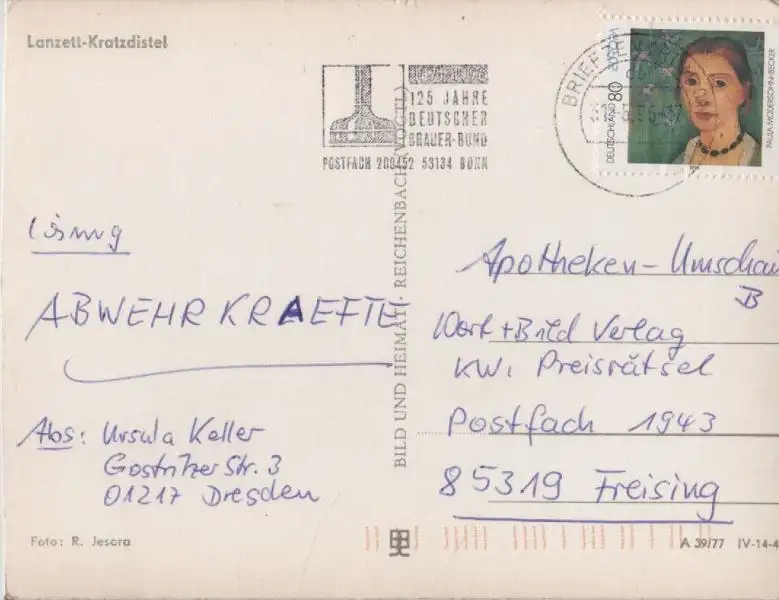 Lanzett-Kratzdistel
125 JAHRE
DEUTSCHER
BRAUER-BUND
POSTFACH 200452 53134 BONN
DEUTSCHLAND 80
EUROPA
PAULA MODERSOHN-BECKER
Lösung
ABWEHRKRAEFTE
Abs: Ursula Keller
Gostritzer Str. 3
01217 Dresden
BILD UND HEIMAT · REICHENBACH (VOGTL)
Apotheken-Umschau
B
Wort+Bild Verlag
KW. Preisrätsel
Postfach 1943
85319 Freising
Foto: R. Jesora
A 39/77 IV-14-4